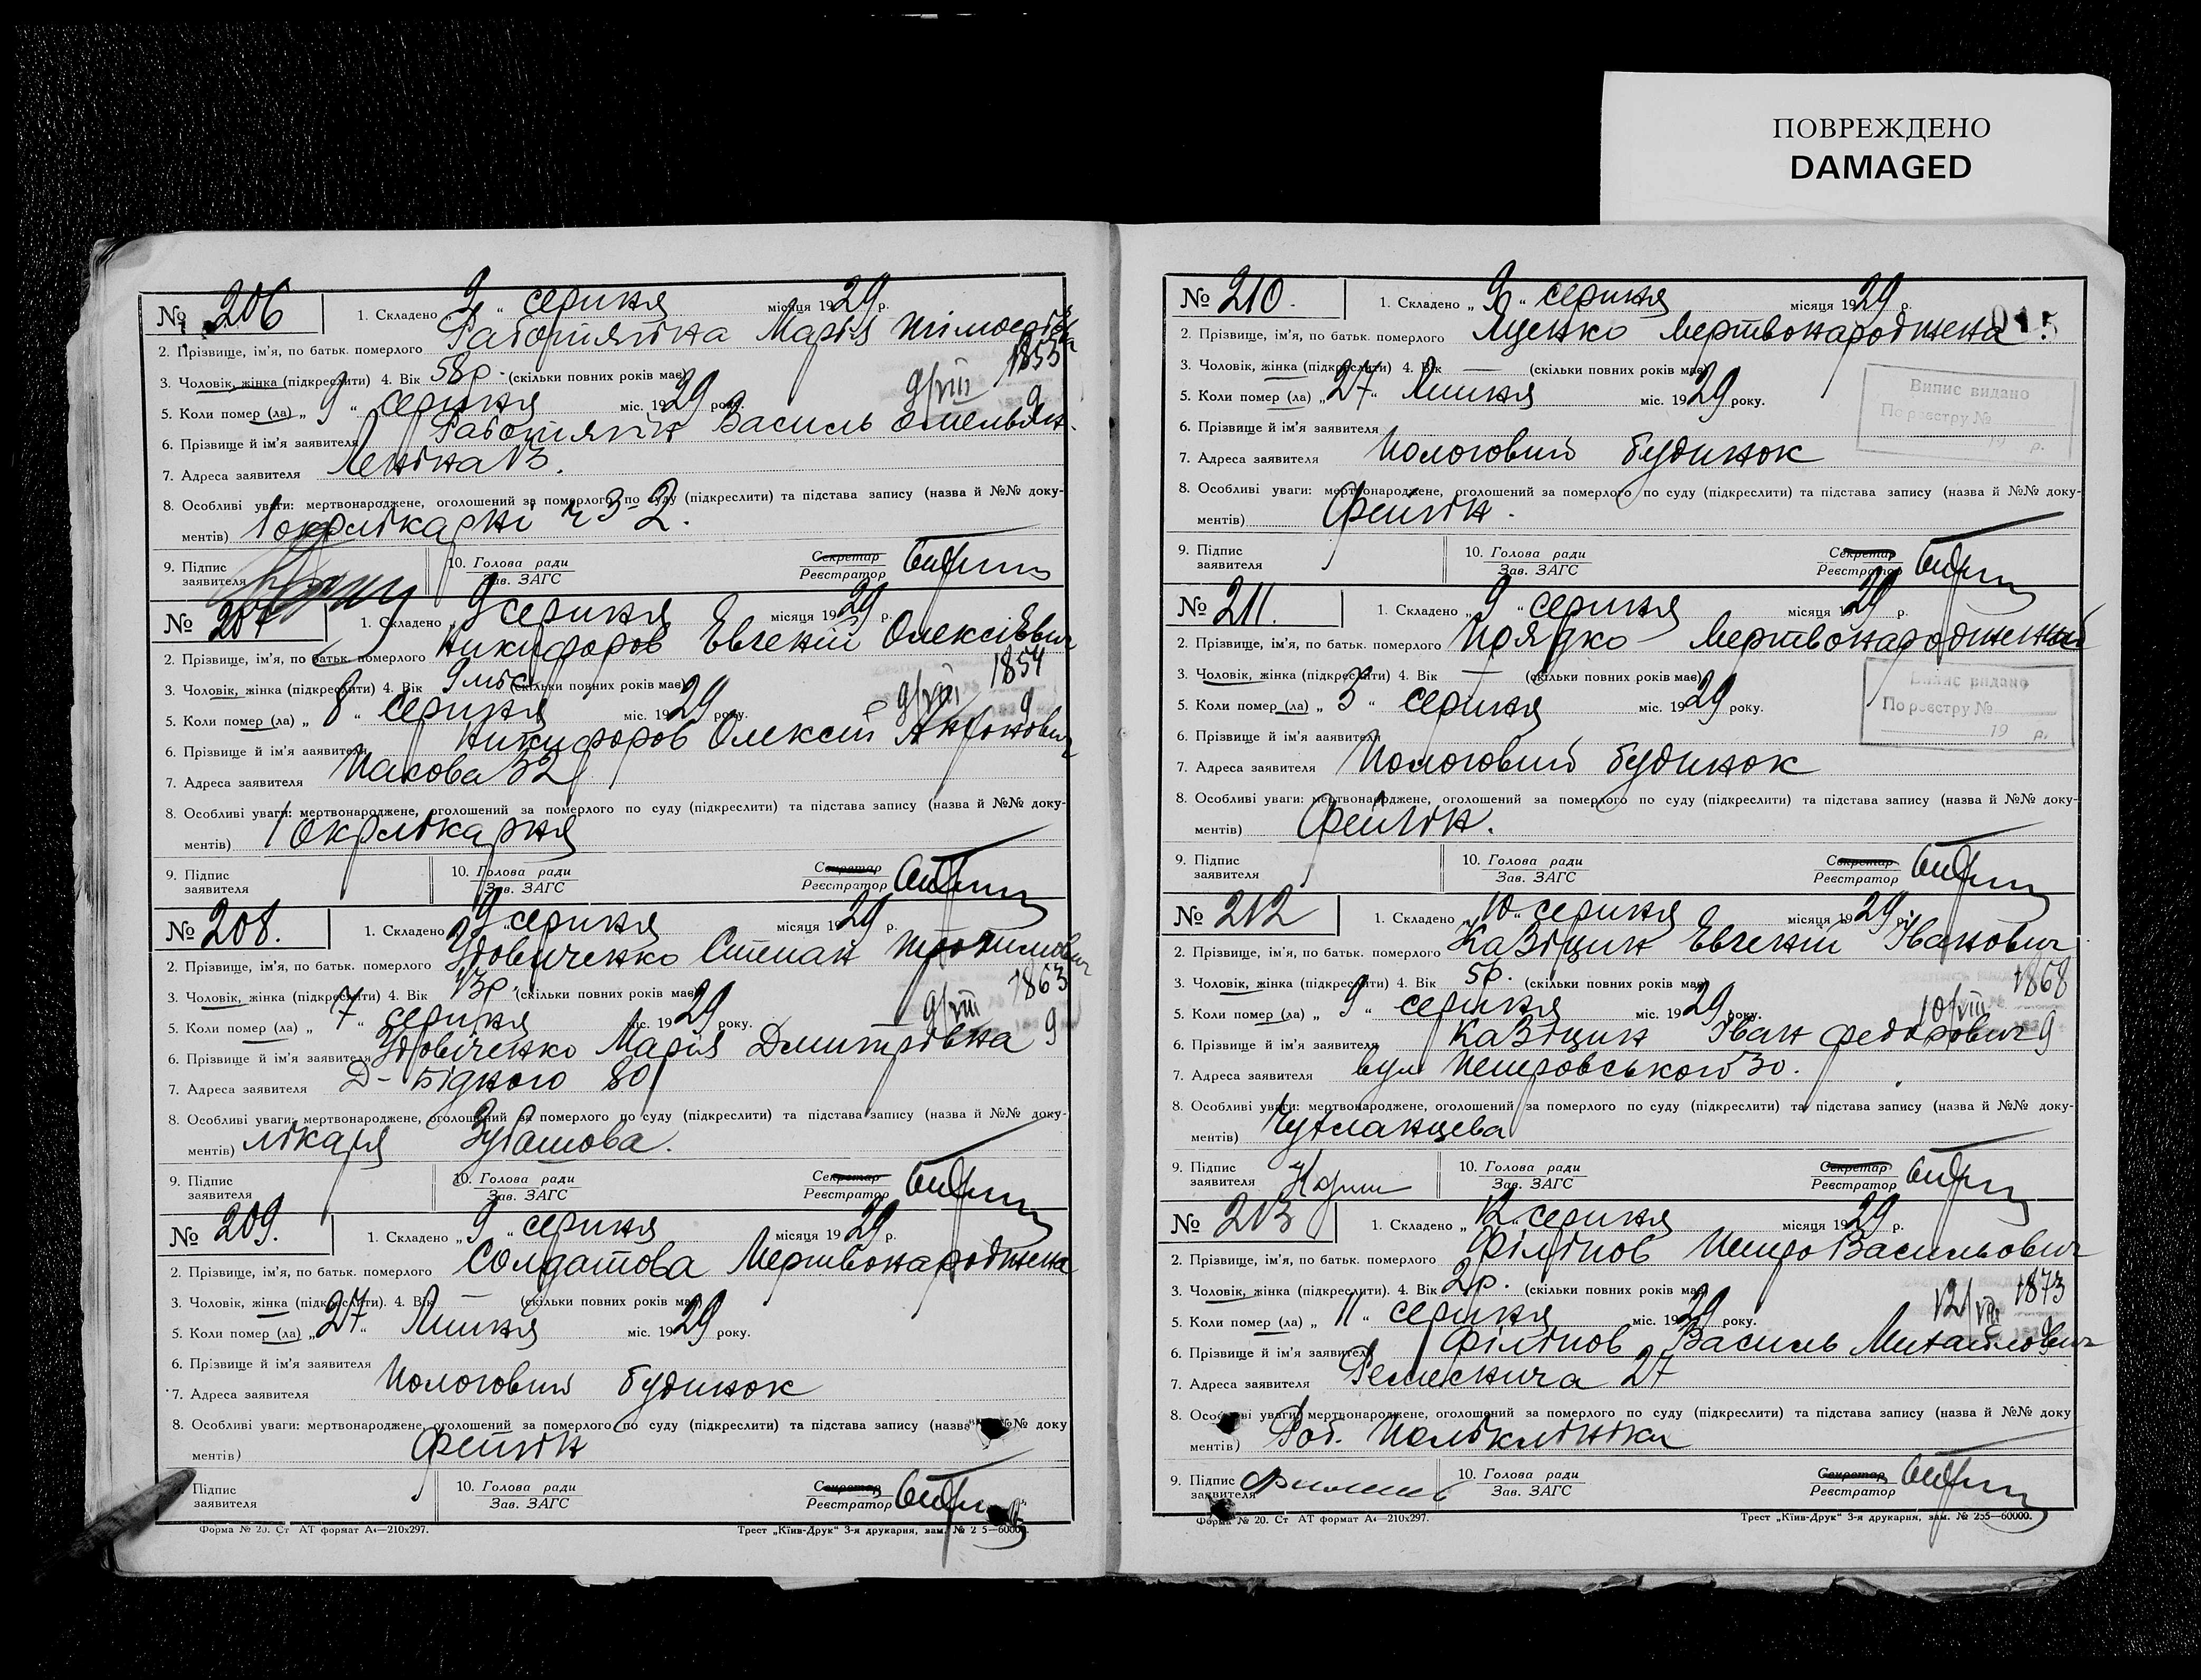 ПОВРЕЖДЕНО
DAMAGED
№ 206 1. Складено „ 9 “ серпня місяця 1929 р.
2. Прізвище, ім'я, по батьк. померлого Марія
3. Чоловік, жінка (підкреслити) 4. Вік 58 р. (скільки повних років має) 1853
5. Коли помер (ла) „ 9 “ серпня міс. 1929 року. 9/VIII 9
6. Прізвище й ім'я заявителя Василь Омельян.
7. Адреса заявителя Леніна 13.
8. Особливі уваги: мертвонароджене, оголошений за померлого по суду (підкреслити) та підстава запису (назва й №№ доку-
ментів) 1 окрлікарні ч 3 2.
9. Підпис заявителя 10. Голова ради Зав. ЗАГС Секретар Реєстратор
№ 207 1. Складено „ 9 серпня місяця 1929 р.
2. Прізвище, ім'я, по батьк. померлого Никифоров Евгеній Олексіевич
3. Чоловік, жінка (підкреслити) 4. Вік 9 міс (скільки повних років має) 1854
5. Коли помер (ла) „ 8 “ серпня міс. 1929 року. 9/VIII 9
6. Прізвище й ім'я заявителя Никифоров Олексій Антонович
7. Адреса заявителя 32
8. Особливі уваги: мертвонароджене, оголошений за померлого по суду (підкреслити) та підстава запису (назва й №№ доку-
ментів) 1 окрлікарня
9. Підпис заявителя 10. Голова ради Зав. ЗАГС Секретар Реєстратор
№ 208. 1. Складено 9 „ серпня місяця 1929 р.
2. Прізвище, ім'я, по батьк. померлого Удовиченко Степан Трохимович
3. Чоловік, жінка (підкреслити) 4. Вік 13 р. (скільки повних років має) 1863
5. Коли помер (ла) „ 7 “ серпня міс. 1929 року. 9/VIII 9
6. Прізвище й ім'я заявителя Удовіченко Марія Дмитрівна
7. Адреса заявителя Д-Бідного 80
8. Особливі уваги: мертвонароджене, оголошений за померлого по суду (підкреслити) та підстава запису (назва й №№ доку-
ментів) лікаря Зубашова.
9. Підпис заявителя 10. Голова ради Зав. ЗАГС Секретар Реєстратор
№ 209. 1. Складено „ 9 “ серпня місяця 1929 р.
2. Прізвище, ім'я, по батьк. померлого Солдатова Мертвонароджена
3. Чоловік, жінка (підкреслити). 4. Вік — (скільки повних років має)
5. Коли помер (ла) „ 27 “ Липня міс. 1929 року.
6. Прізвище й ім'я заявителя
7. Адреса заявителя Пологовий будинок
8. Особливі уваги: мертвонароджене, оголошений за померлого по суду (підкреслити) та підстава запису (назва й №№ доку
ментів) Фейгін
9. Підпис заявителя 10. Голова ради Зав. ЗАГС Секретар Реєстратор
Форма № 20. Ст АТ формат А4—210х297. Трест „Київ-Друк“ 3-я друкарня, зам. № 2 5—60000.
№ 210. 1. Складено „ 9 “ серпня місяця 1929 р.
2. Прізвище, ім'я, по батьк. померлого Луценко Мертвонароджена.
3. Чоловік, жінка (підкреслити) 4. Вік — (скільки повних років має)
5. Коли помер (ла) „ 27 “ Липня міс. 1929 року.
Випис видано
По реєстру №
19 р.
6. Прізвище й ім'я заявителя
7. Адреса заявителя Пологовий будинок
8. Особливі уваги: мертвонароджене, оголошений за померлого по суду (підкреслити) та підстава запису (назва й №№ доку-
ментів) Фейгін.
9. Підпис заявителя 10. Голова ради Зав. ЗАГС Секретар Реєстратор
№ 211. 1. Складено „ 9 “ серпня місяця 1929 р.
2. Прізвище, ім'я, по батьк. померлого Прядко Мертвонароджений
3. Чоловік, жінка (підкреслити) 4. Вік — (скільки повних років має)
5. Коли помер (ла) „ 3 “ серпня міс. 1929 року.
Випис видано
По реєстру №
19 р.
6. Прізвище й ім'я заявителя
7. Адреса заявителя Пологовий будинок
8. Особливі уваги: мертвонароджене, оголошений за померлого по суду (підкреслити) та підстава запису (назва й №№ доку-
ментів) Фейгін.
9. Підпис заявителя 10. Голова ради Зав. ЗАГС Секретар Реєстратор
№ 212 1. Складено „ 10 “ серпня місяця 1929 р.
2. Прізвище, ім'я, по батьк. померлого Казіцин Евгеній Іванович
3. Чоловік, жінка (підкреслити) 4. Вік 5 р. (скільки повних років має) 1868
5. Коли помер (ла) „ 9 “ серпня міс. 1929 року. 10/VIII
6. Прізвище й ім'я заявителя Казіцин Іван Федорович 9
7. Адреса заявителя вул Петровського 30.
8. Особливі уваги: мертвонароджене, оголошений за померлого по суду (підкреслити) та підстава запису (назва й №№ доку-
ментів)
9. Підпис заявителя 10. Голова ради Зав. ЗАГС Секретар Реєстратор
№ 213 1. Складено „ 12 “ серпня місяця 1929 р.
2. Прізвище, ім'я, по батьк. померлого Філіпов Петро Васильович
3. Чоловік, жінка (підкреслити). 4. Вік 2 р. (скільки повних років має) 1873
5. Коли помер (ла) „ 11 “ серпня міс. 1929 року. 12/VIII
6. Прізвище й ім'я заявителя Філіпов Василь Михайлович
7. Адреса заявителя 27
8. Особливі уваги: мертвонароджене, оголошений за померлого по суду (підкреслити) та підстава запису (назва й №№ доку
ментів) Роб. Поліклініка
9. Підпис заявителя 10. Голова ради Зав. ЗАГС Секретар Реєстратор
Форма № 20. Ст АТ формат А4—210х297. Трест „Київ-Друк“ 3-я друкарня, зам. № 255—60000.